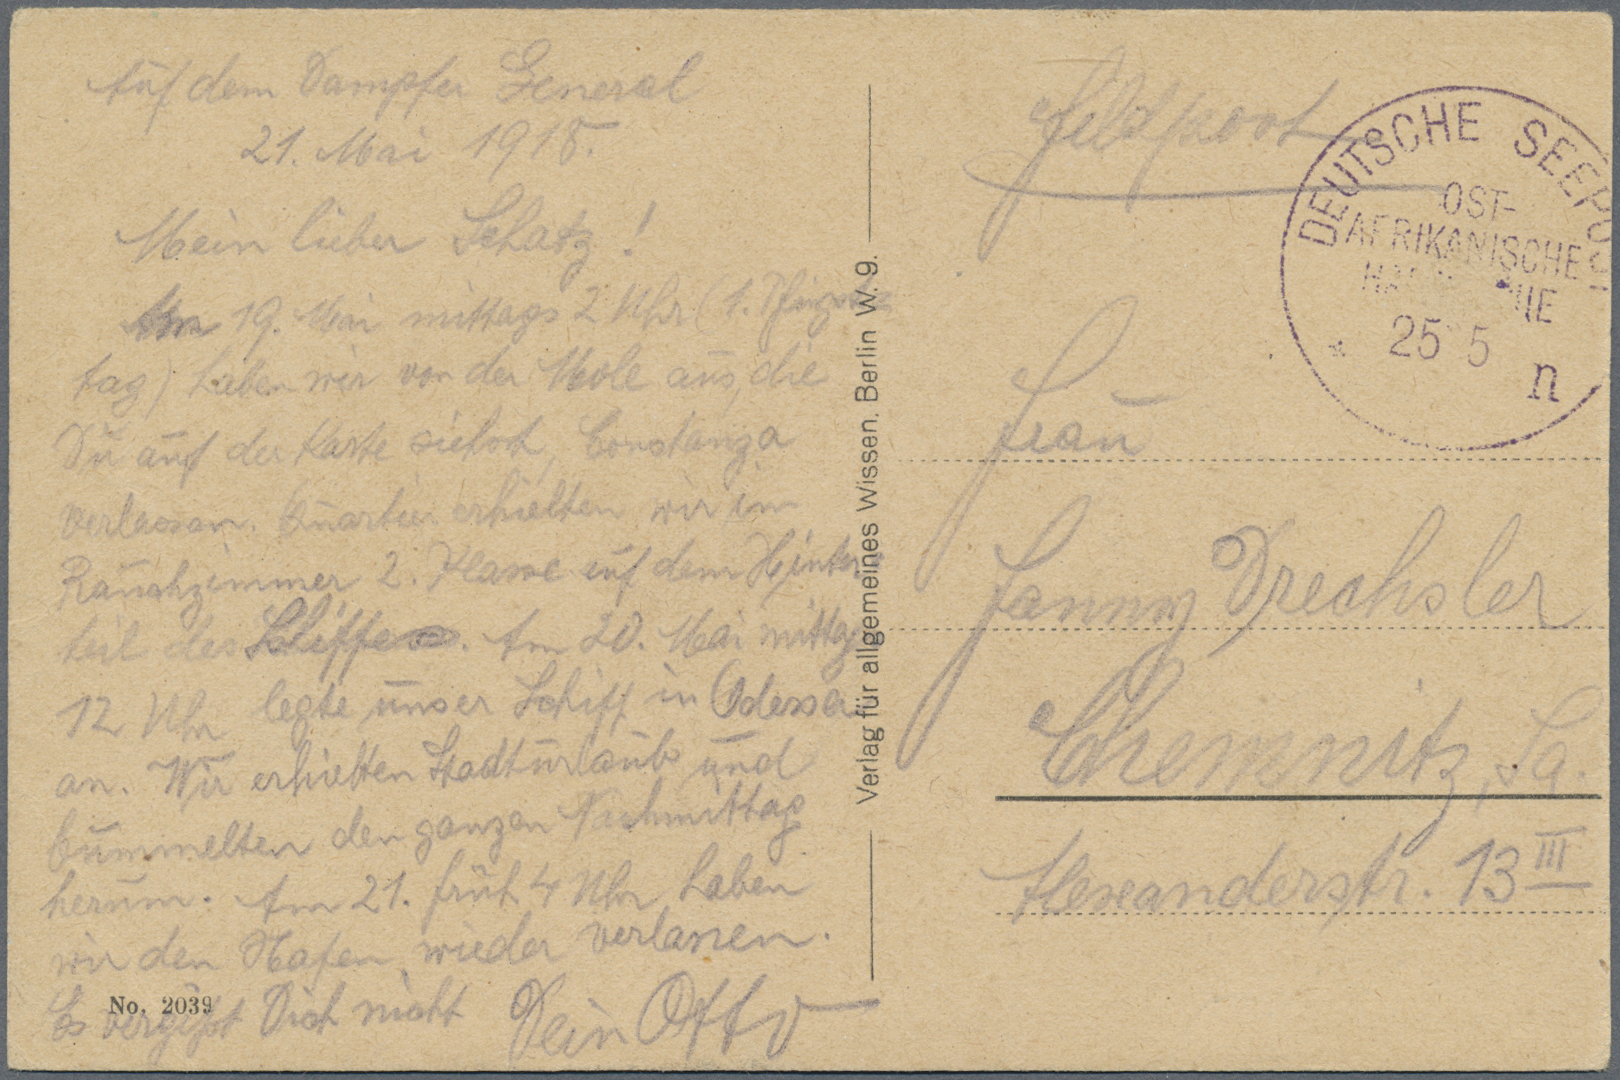 Auf dem Dampfer General
21. Mai 1918.
Mein lieber Schatz!
Am 19. Mai mittags 2 Uhr (1. Pfingst-
tag) haben wir von der Mole aus, die
Du auf der Karte siehst, Constanza
verlassen. Quartier erhielten wir im
Rauchzimmer 2. Klasse auf dem Hinter-
teil des Schiffes. Am 20. Mai mittag
12 Uhr legte unser Schiff in Odessa
an. Wir erhielten Stadturlaub und
bummelten den ganzen Nachmittag
herum. Am 21. früh 4 Uhr haben
wir den Hafen wieder verlassen.
Es vergißt Dich nicht Dein Otto
No. 2039
Verlag für allgemeines Wissen. Berlin W. 9.
Feldpost
DEUTSCHE SEEPOST
OST-
AFRIKANISCHE
25 5
n
Frau
Fanny Drechsler
Chemnitz, Sa.
Alexanderstr. 13 III